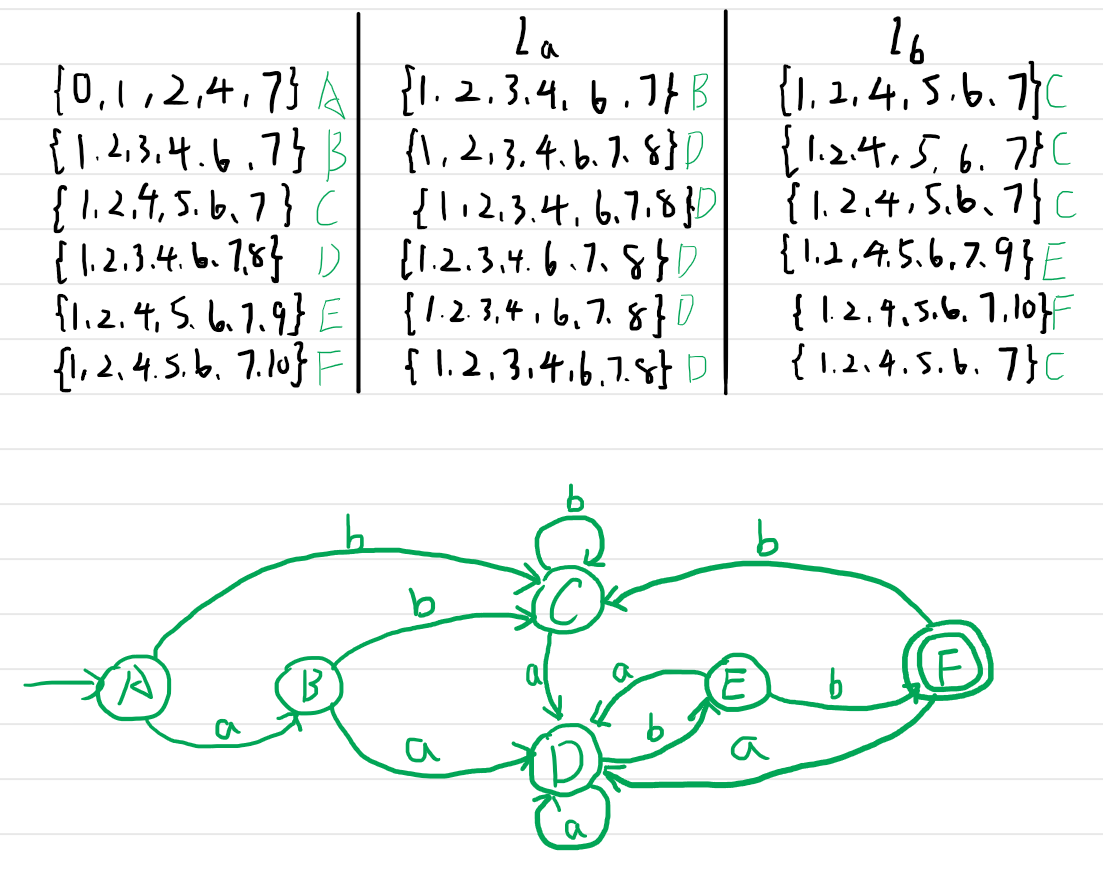 Ia Ib
{0,1,2,4,7} A {1.2.3.4.6.7} B {1.2,4,5.6.7} C
{1.2,3,4.6,7} B {1,2,3.4.6.7.8} D {1.2.4,5,6.7} C
{1.2,4,5.6、7} C {1.2.3.4,6.7,8} D {1.2,4,5.6、7} C
{1.2.3.4.6.7,8} D {1.2.3,4.6.7、8} D {1.2,4.5.6,7.9} E
{1.2.4,5.6.7.9} E {1.2.3,4,6,7.8} D {1.2.4.5.6.7.10} F
{1,2、4.5.6.7.10} F {1.2.3.4.6.7.8} D {1.2、4.5.6.7} C
b
b b
b
C
A B a a E b F
b
a a D a
a